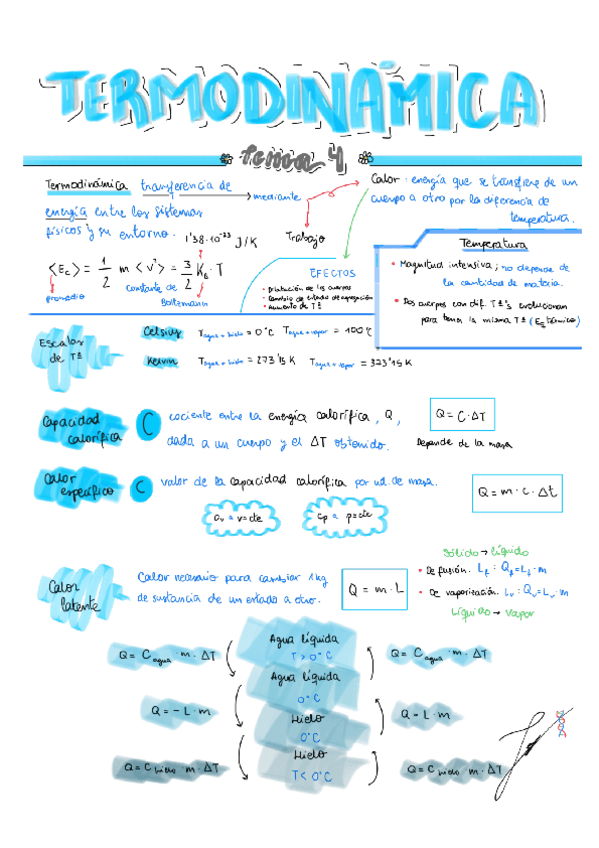 TERMODINÁMICA
Tema 4
Termodinámica transferencia de
energía entre los sistemas
físicos y su entorno.
mediante
Trabajo
Calor: energía que se transfiere de un
cuerpo a otro por la diferencia de
temperatura.
1'38·10⁻²³ J/K
<Ec> = 1/2 m <v²> = 3/2 K_B · T
promedio
constante de
Boltzmann
EFECTOS
• Dilatación de los cuerpos
• Cambio de estado de agregación
• Aumento de Tª
Temperatura
• Magnitud intensiva; no depende de
la cantidad de materia.
• Dos cuerpos con dif. Tª's evolucionan
para tener la misma Tª (Eq térmico)
Escalas
de Tª
Celsius T agua + hielo = 0°C T agua + vapor = 100°C
Kelvin T agua + hielo = 273'15 K T agua + vapor = 323'15 K
Capacidad
calorífica
C
cociente entre la energía calorífica, Q,
dada a un cuerpo y el ΔT obtenido.
Q = C·ΔT
Depende de la masa
Calor
específico
C
valor de la capacidad calorífica por ud. de masa.
Q = m · c · Δt
cv a v=cte
cp a p=cte
Calor
latente
Calor necesario para cambiar 1 kg
de sustancia de un estado a otro.
Q = m · L
Sólido → líquido
• De fusión. L_f : Q_f = L_f · m
• De vaporización. L_v : Q_v = L_v · m
Líquido → vapor
Agua líquida
T > 0°C
Q = C agua · m · ΔT
Q = C agua · m · ΔT
Agua líquida
0°C
Q = - L · m
Q = L · m
Hielo
0°C
Hielo
T < 0°C
Q = C hielo m · ΔT
Q = C hielo m · ΔT